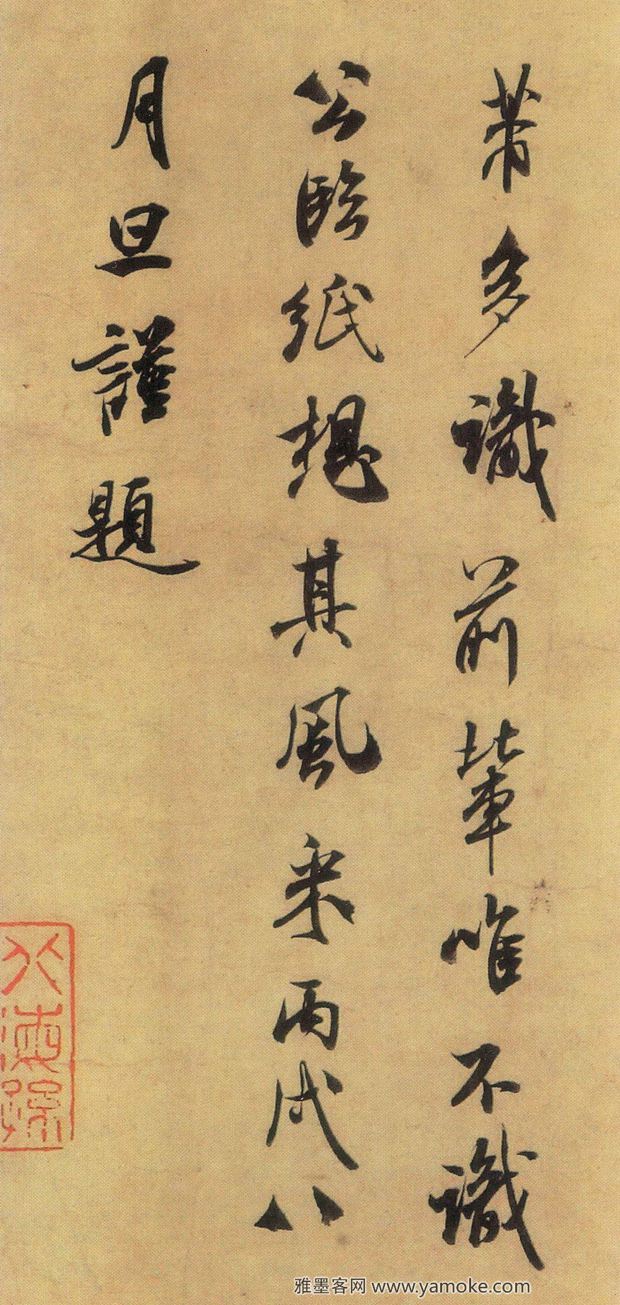 芾多識前輩唯不識
公臨紙想其風采丙戌八
月旦謹題
雅墨客网 www.yamoke.com